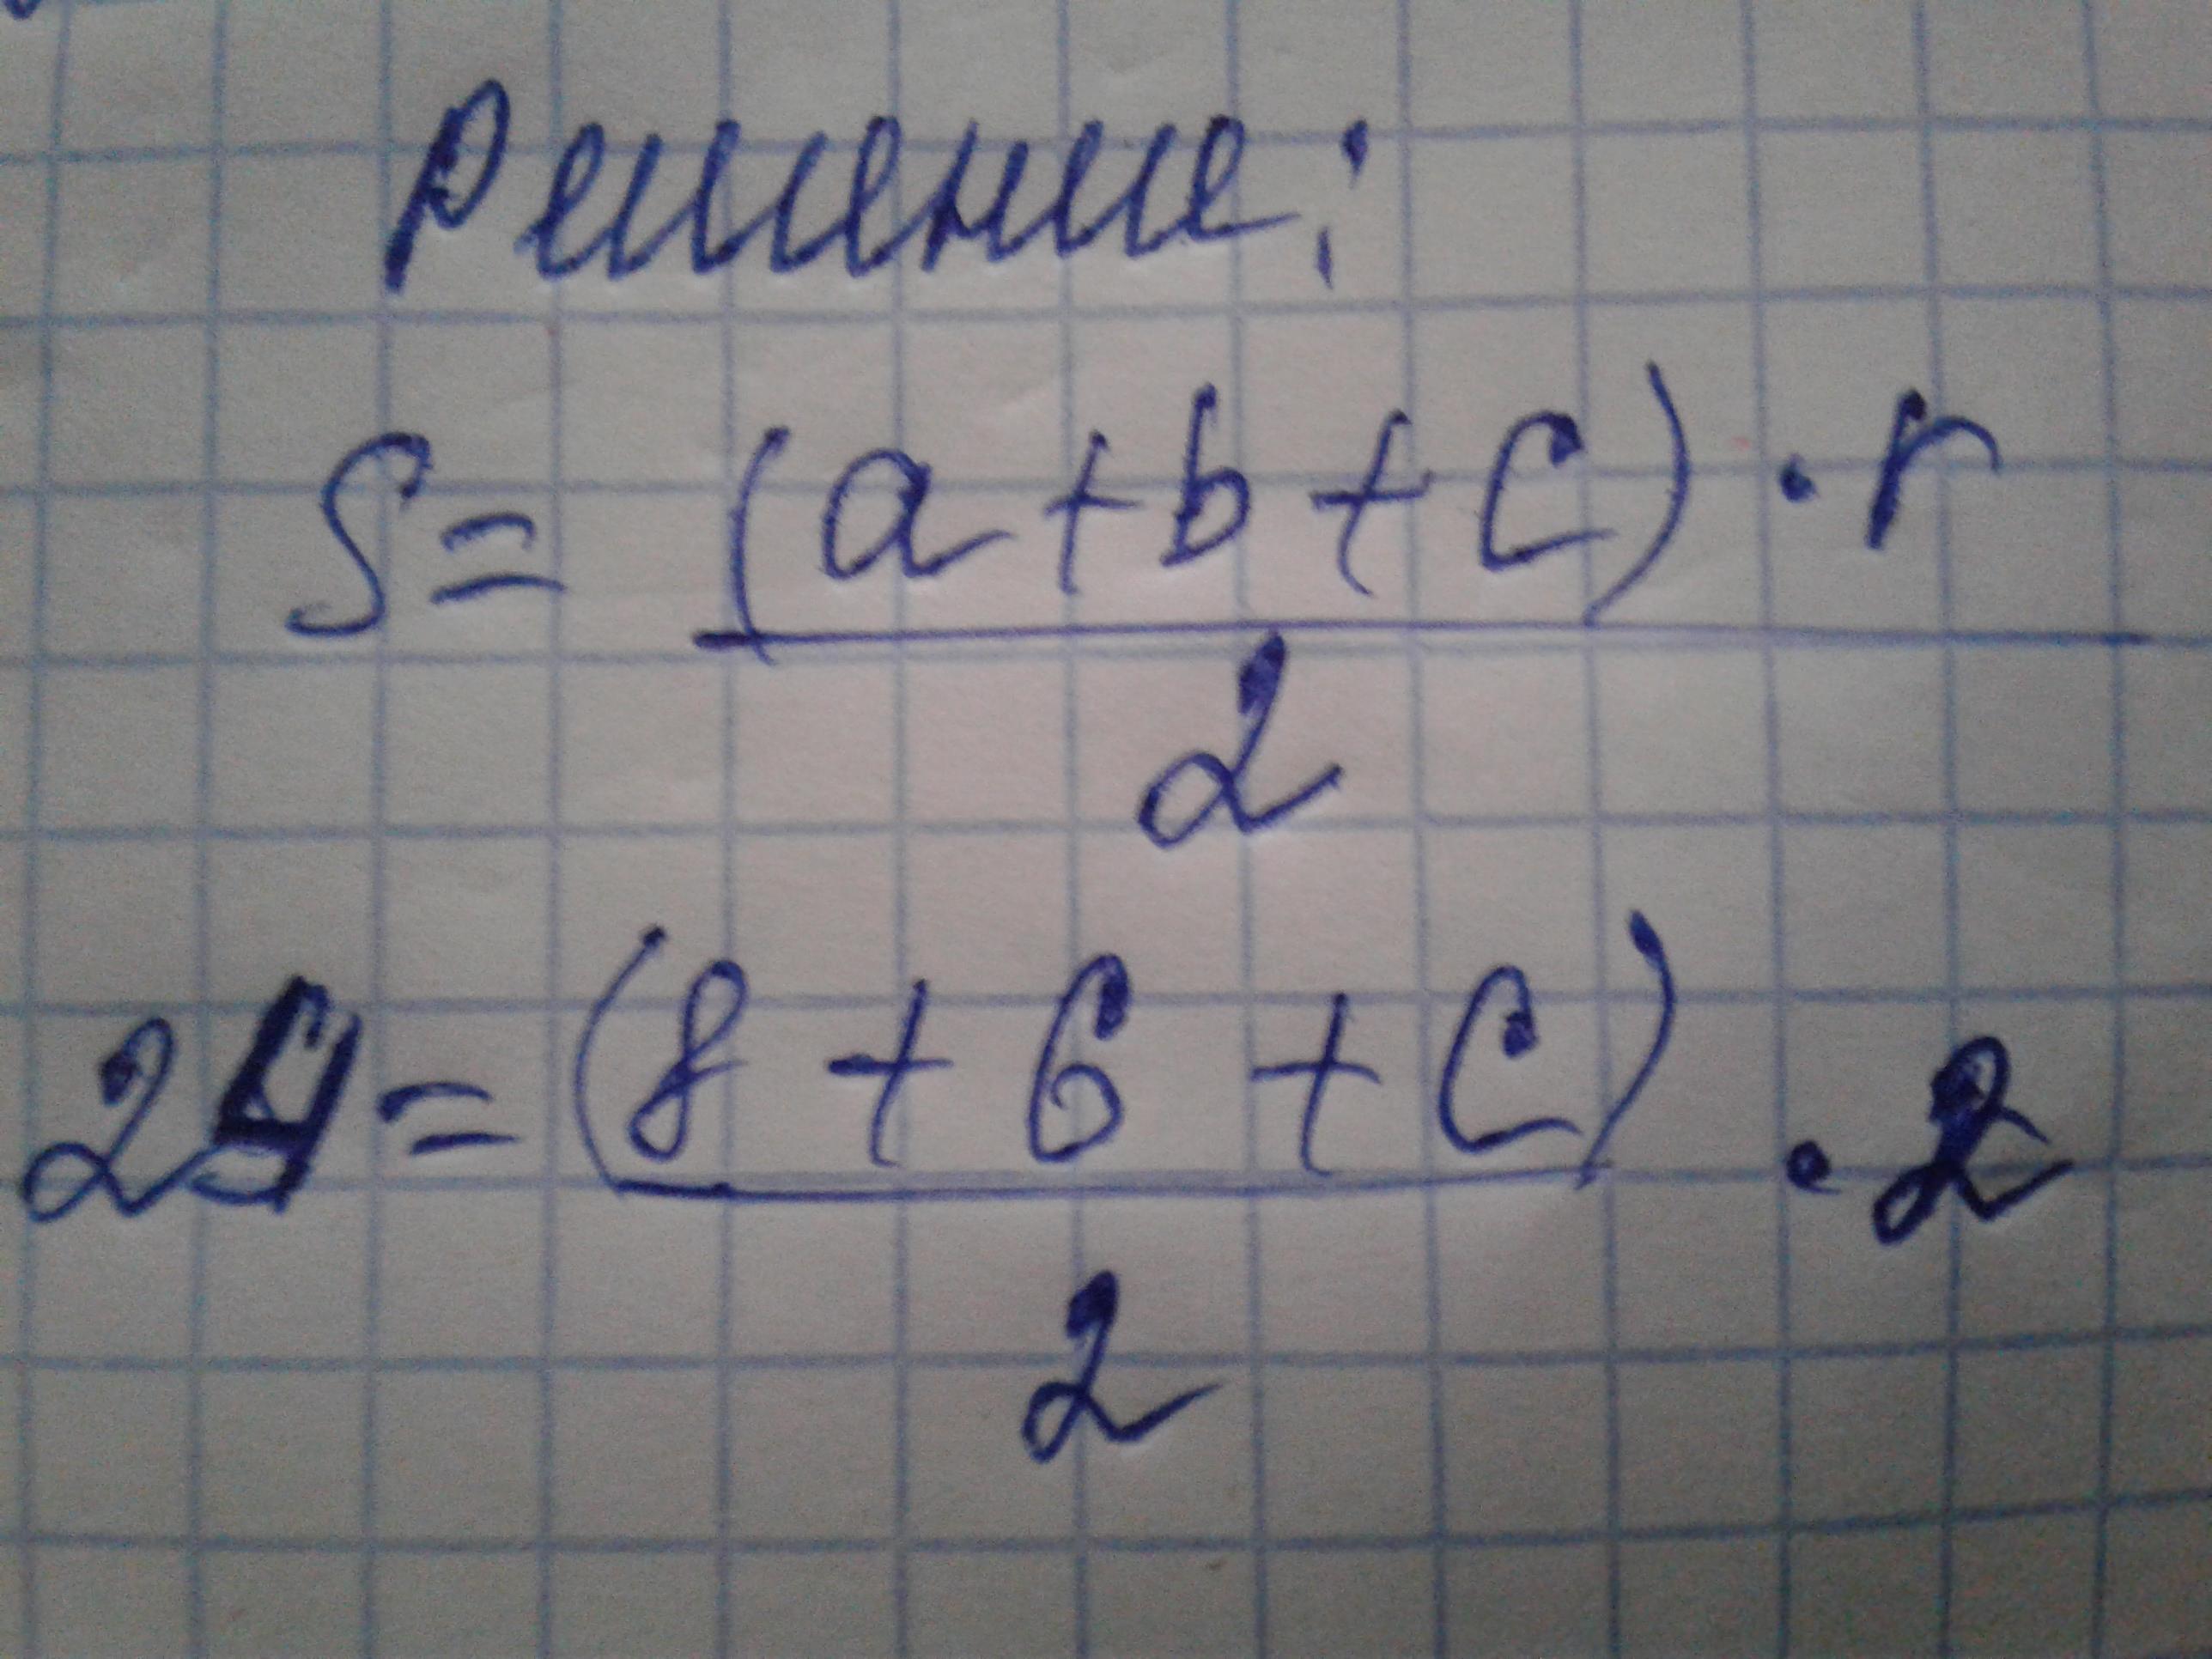 Решение:
S = (a + b + c) · r
2
24 = (8 + 6 + c) · 2
2